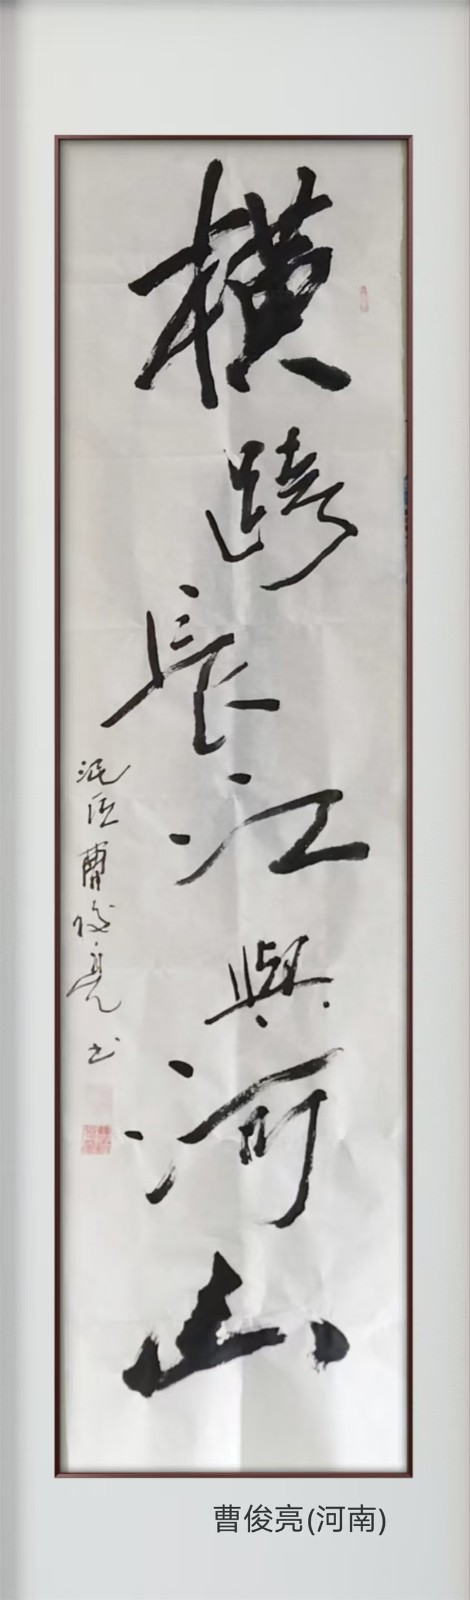 横跨長江與河山
曹俊亮书
曹俊亮(河南)